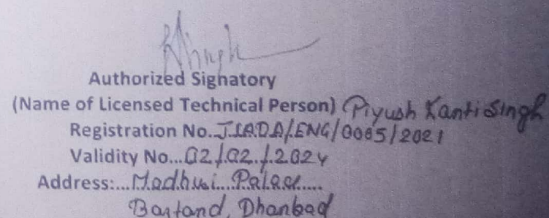 Authorized Signatory
(Name of Licensed Technical Person) Piyush Kanti Singh
Registration No. JIADA/ENG/0065/2021
Validity No...02/02/2024
Address:...Madhuri Palace....
Bartand, Dhanbad